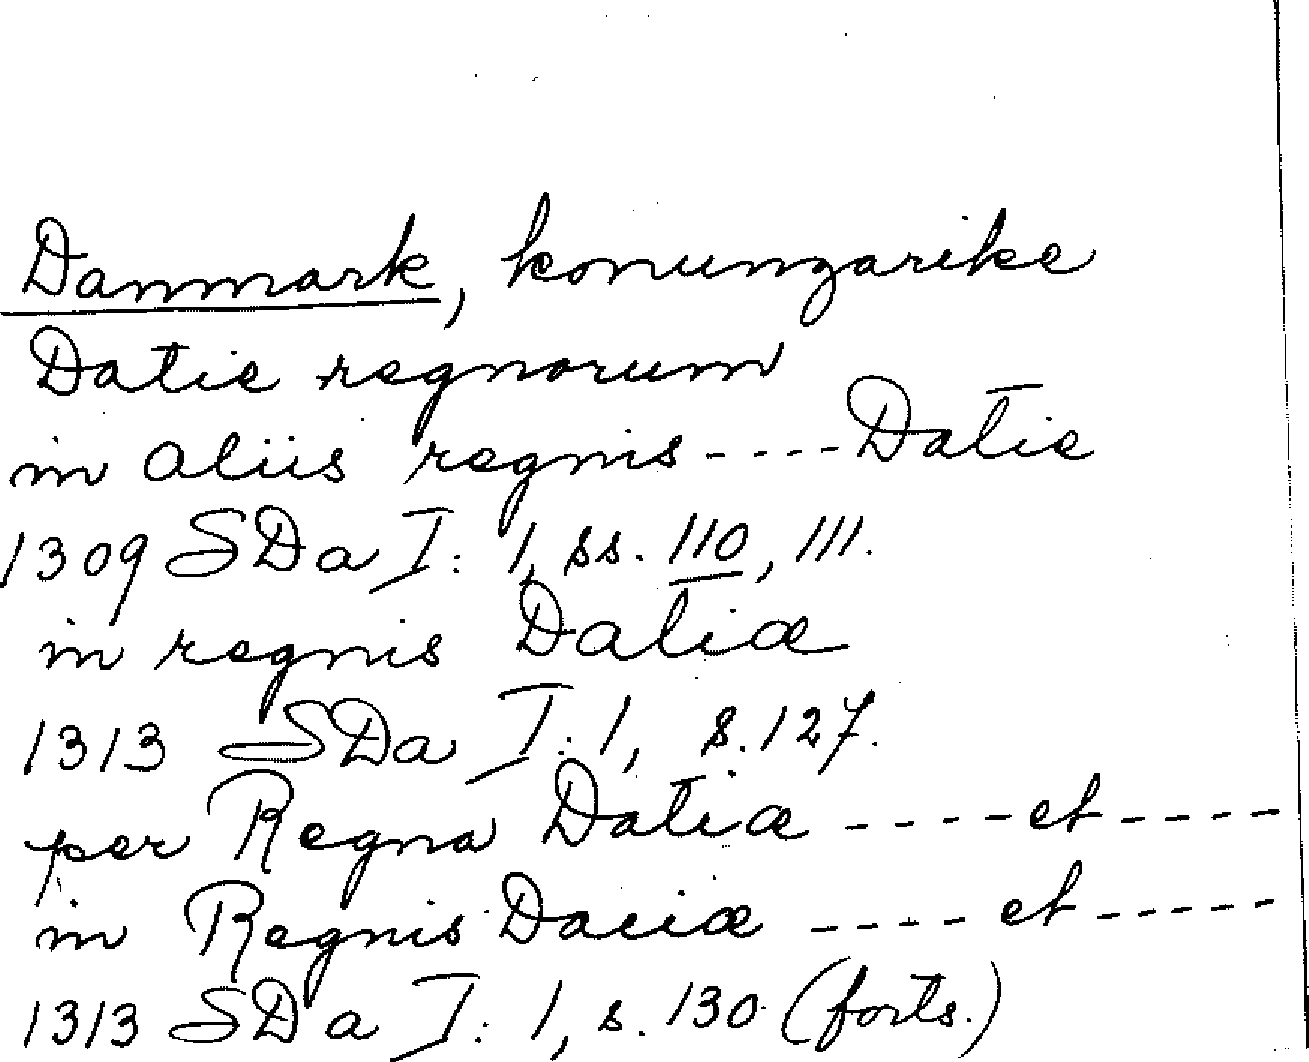 Danmark, konungarike
Datie regnorum
in aliis regnis ---- Datie
1309 SDa I: 1, ss. 110, 111.
in regnis Datiæ
1313 SDa I: 1, s. 127.
per Regna Datiæ ---- et ----
in Regnis Daciæ ---- et -----
1313 SDa I: 1, s. 130 (forts.)